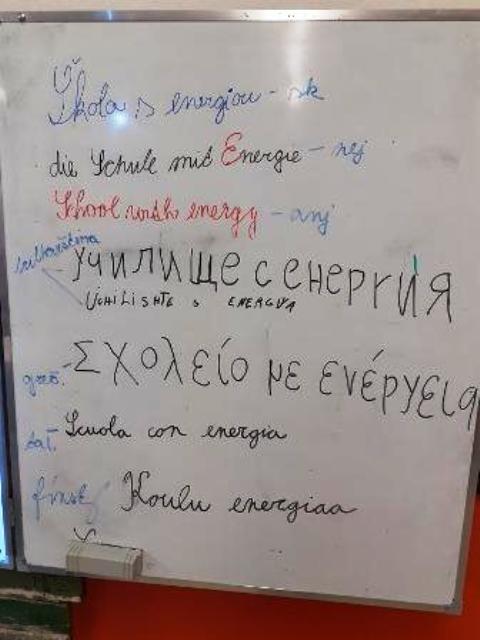 Škola s energiou - sk
die Schule mid Energie - nej
School with energy - anj
bulharština
училище с енергия
UCHILISHTE s ENERGIYA
greč. Σχολείο με ενέργεια
tal. Scuola con energia
fínsky Koulu energiaa